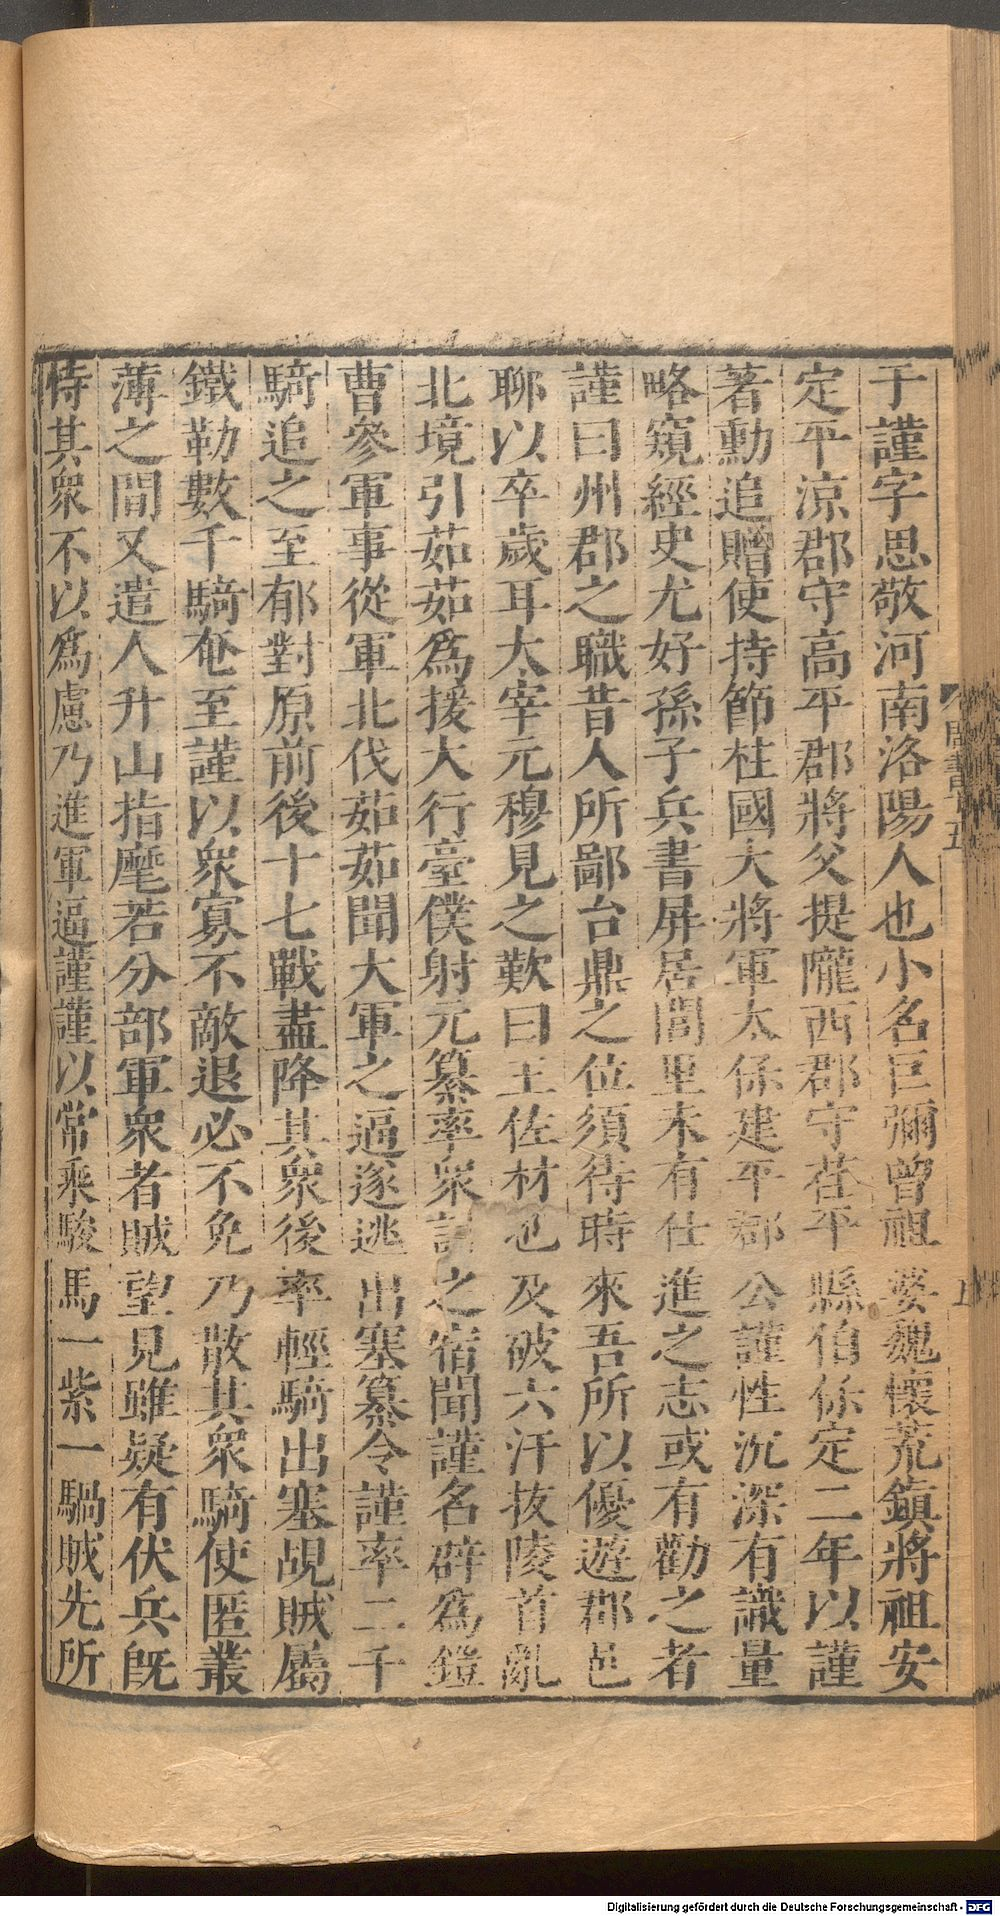 于謹字思敬河南洛陽人也小名巨彌曾祖婆魏懷荒鎮將祖安
定平涼郡守高平郡將父提隴西郡守荏平縣伯保定二年以謹
著勳追贈使持節柱國大將軍太保建平郡公謹性沉深有識量
略窺經史尤好孫子兵書屏居閭里未有仕進之志或有勸之者
謹曰州郡之職昔人所鄙台鼎之位須待時來吾所以優遊郡邑
聊以卒歲耳太宰元穆見之歎曰王佐材也及破六汗拔陵首亂
北境引茹茹爲援大行臺僕射元纂率衆討之宿聞謹名辟爲鎧
曹參軍事從軍北伐茹茹聞大軍之逼遂逃出塞纂令謹率二千
騎追之至郁對原前後十七戰盡降其衆後率輕騎出塞覘賊屬
鐵勒數千騎奄至謹以衆寡不敵退必不免乃散其衆騎使匿叢
薄之間又遣人升山指麾若分部軍衆者賊望見雖疑有伏兵旣
恃其衆不以爲慮乃進軍逼謹謹以常乘駿馬一紫一騧賊先所
周書十五
Digitalisierung gefördert durch die Deutsche Forschungsgemeinschaft - DFG